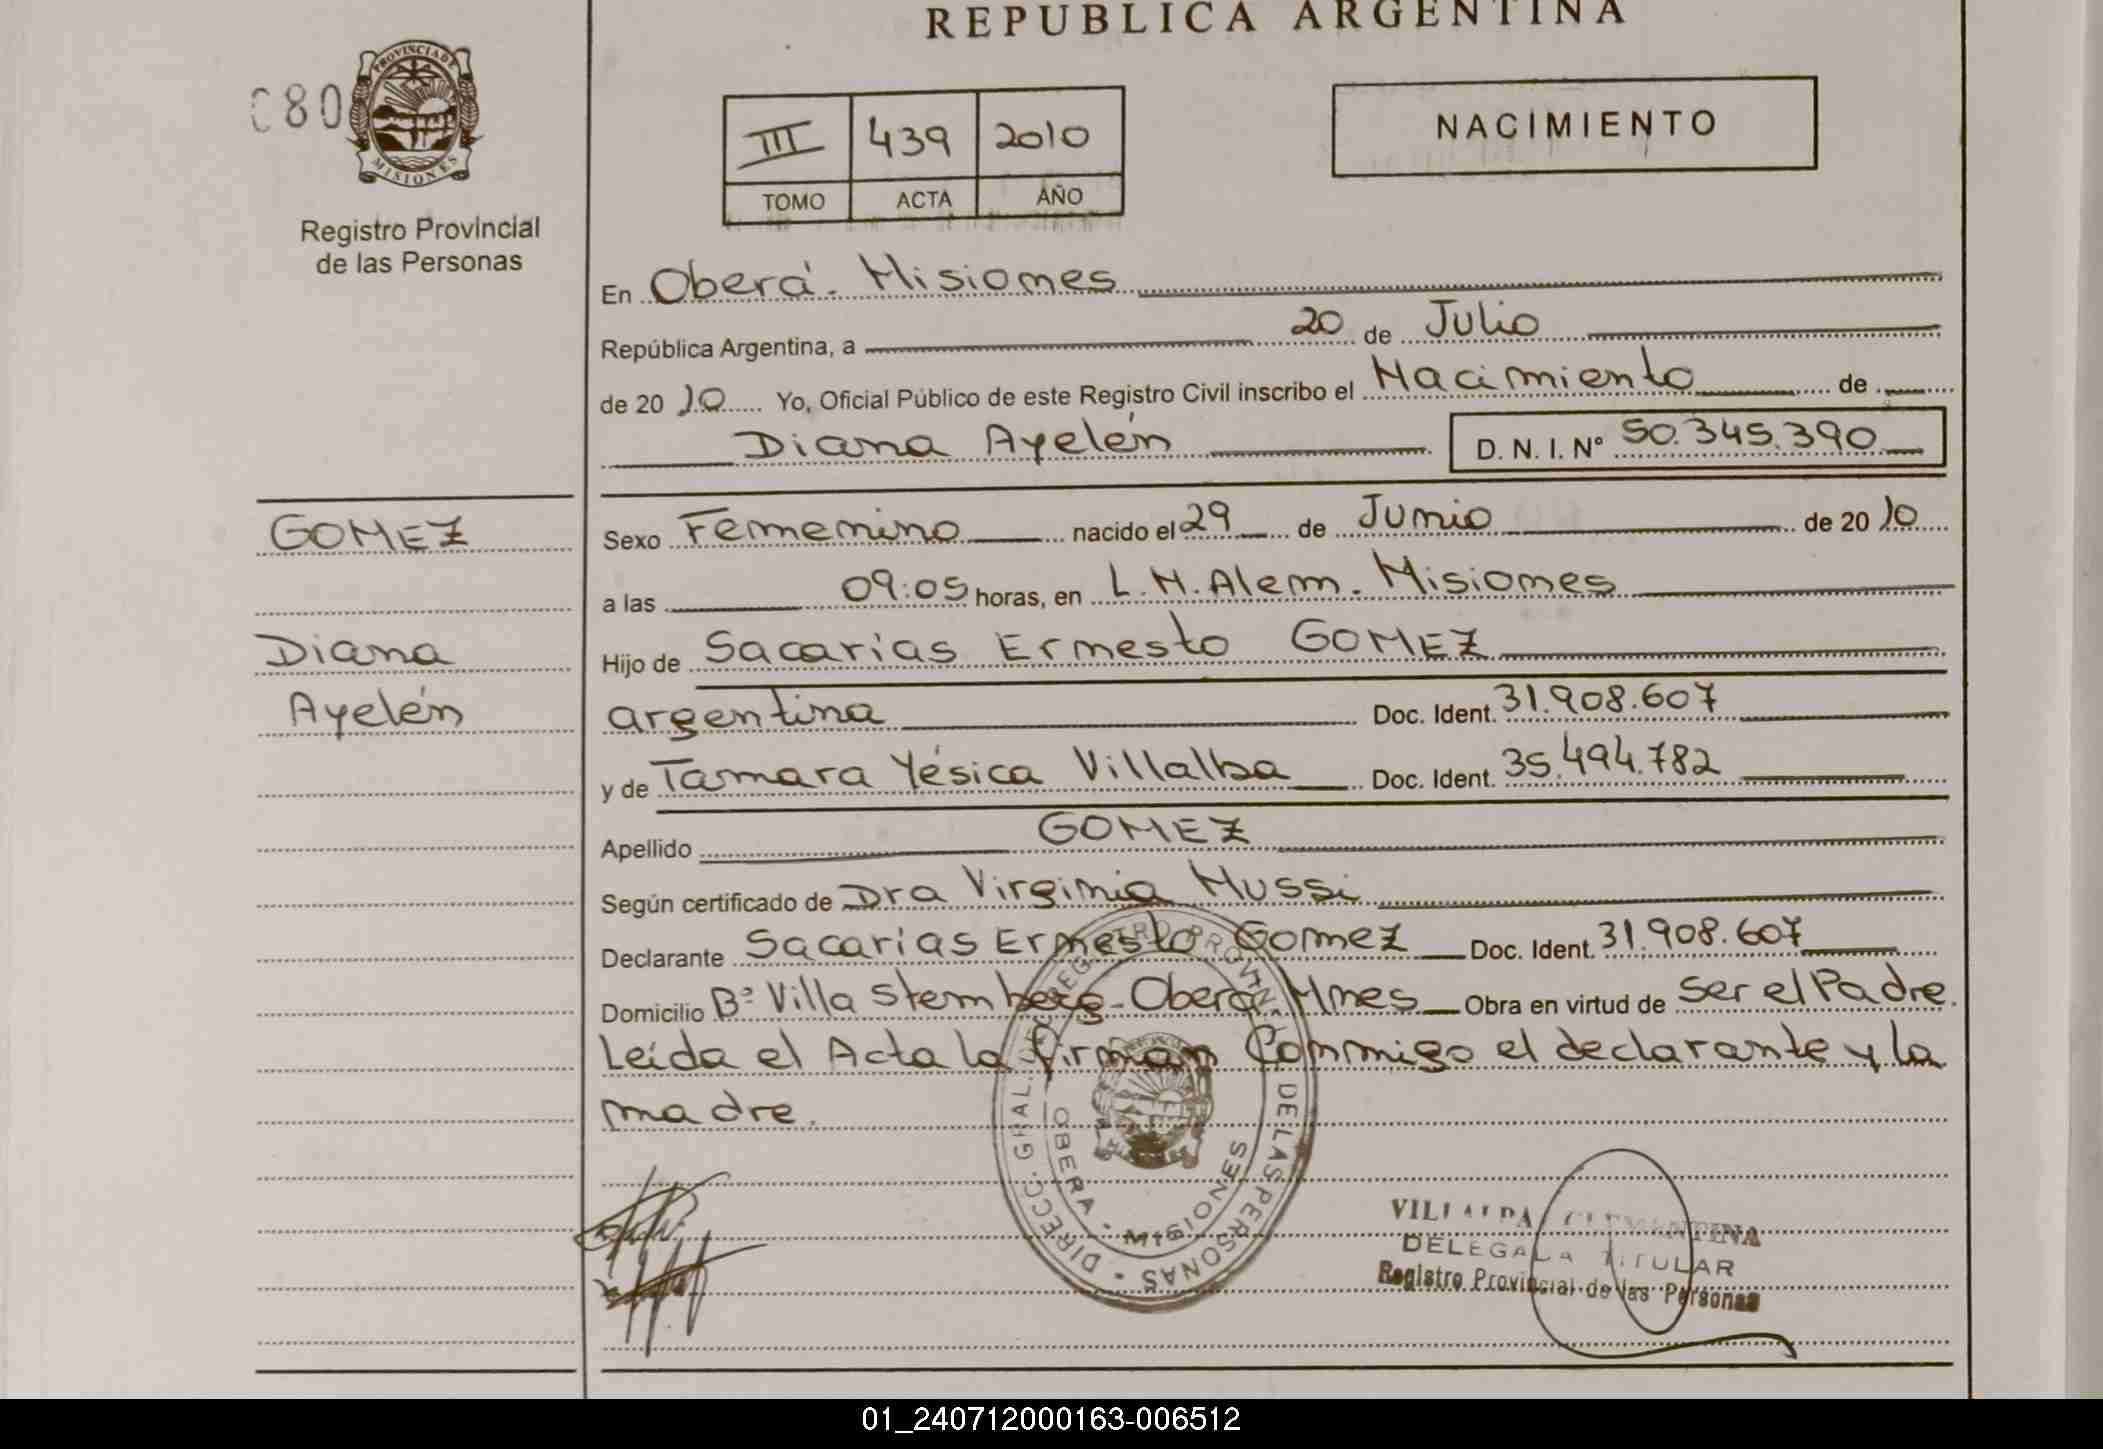 REPUBLICA ARGENTINA
080
PROVINCIA DE
MISIONES
Registro Provincial
de las Personas
III 439 2010
TOMO ACTA AÑO
NACIMIENTO
En Oberá. Misiones
República Argentina, a 20 de Julio
de 2010 Yo, Oficial Público de este Registro Civil inscribo el Nacimiento de
Diana Ayelén D. N. I. Nº 50.345.390
GOMEZ
Diana
Ayelén
Sexo Femenino nacido el 29 de Junio de 2010
a las 09:05 horas, en L.N.Alem. Misiones
Hijo de Sacarías Ernesto GOMEZ
argentina Doc. Ident. 31.908.607
y de Tamara Yésica Villalba Doc. Ident. 35.494.782
Apellido GOMEZ
Según certificado de Dra Virginia Mussi
Declarante Sacarías Ernesto Gomez Doc. Ident. 31.908.607
Domicilio Bº Villa Stemberg-Oberá Mnes Obra en virtud de Ser el Padre.
Leída el Acta la firman Conmigo el declarante y la
madre.
DIRECC. GRAL. DE REGISTRO PROVINCIAL DE LAS PERSONAS
OBERA - MISIONES
VILLALBA CLEMENTINA
DELEGADA TITULAR
Registro Provincial de las Personas
01_240712000163-006512